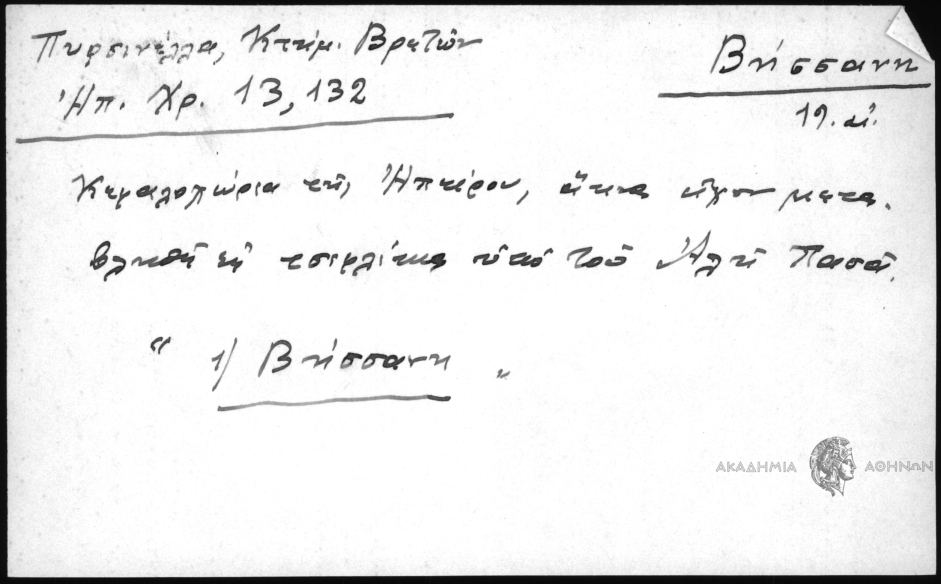 Πυρσινέλλα, Κτημ. Βρετῶν
Ἠπ. Χρ. 13, 132
Βήσσανη
19. αἰ.
Κεφαλοχώρια τῆς Ἠπείρου, ἅτινα εἶχον μετα-
βληθῆ εἰς τσιφλίκια ὑπὸ τοῦ Ἀλῆ Πασᾶ.
“ 1) Βήσσανη „
ΑΚΑΔΗΜΙΑ ΑΘΗΝΩΝ